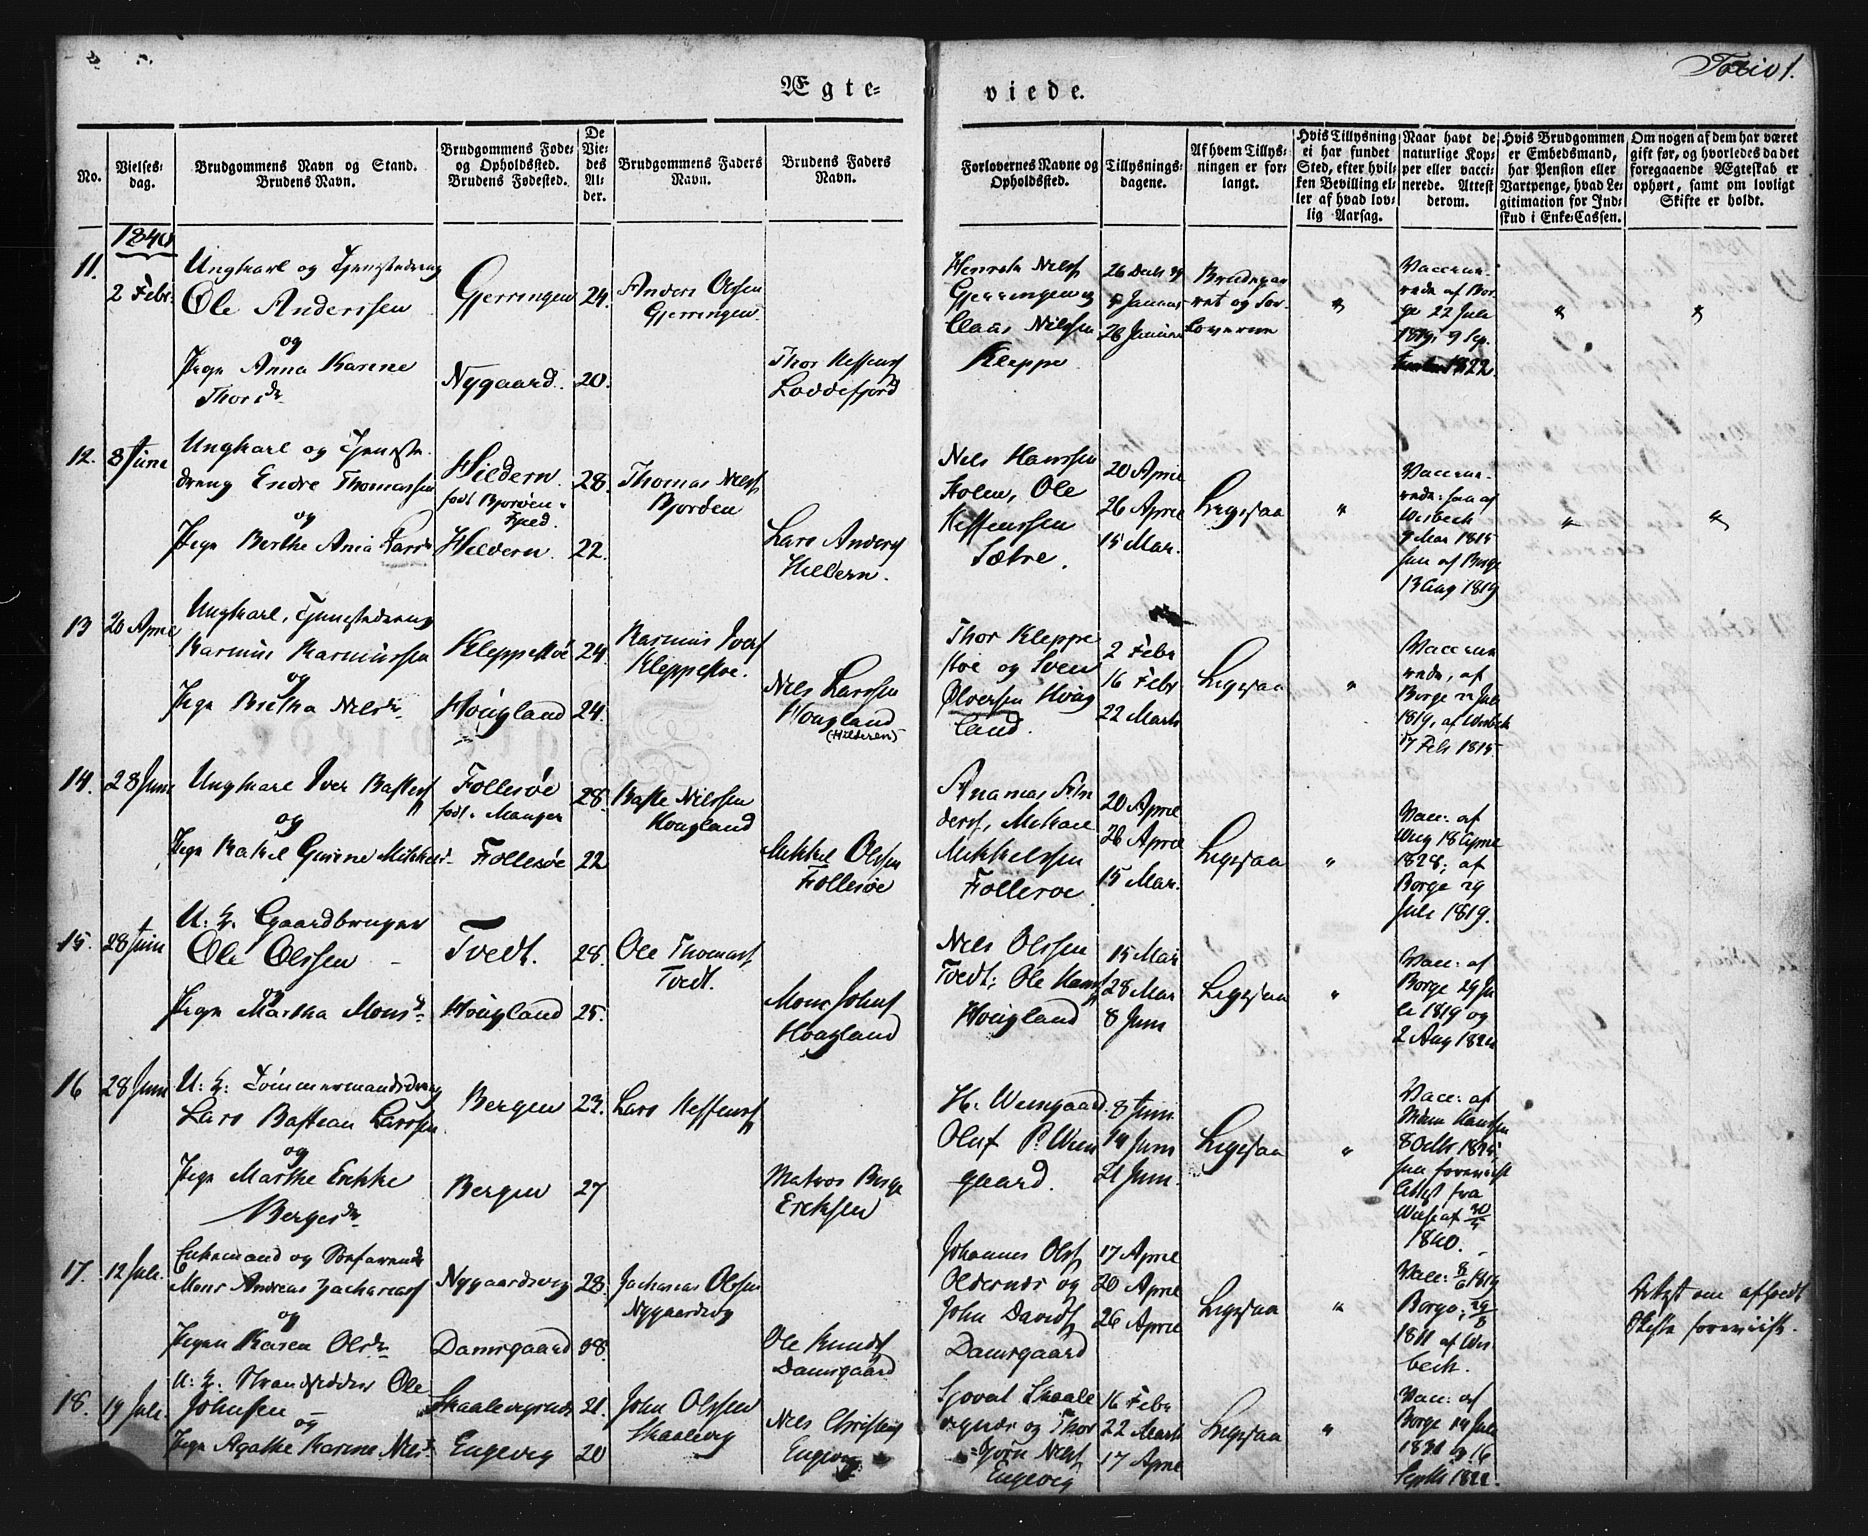 Folio 1.
Ægte=
viede.
No.
Vielses-
dag.
Brudgommens Navn og Stand.
Brudens Navn.
Brudgommens Føde-
og Opholdssted.
Brudens Fødested.
De
Vie-
des
Al-
der.
Brudgommens Faders
Navn.
Brudens Faders
Navn.
Forlovernes Navne og
Opholdssted.
Tillysnings-
dagene.
Af hvem Tillys-
ningen er for-
langt.
Hvis Tillysning
ei har fundet
Sted, efter hvil-
ken Bevilling el-
ler af hvad lov-
lig Aarsag.
Naar havt de
naturlige Kop-
per eller vacci-
nerede. Attest
derom.
Hvis Brudgommen
er Embedsmand,
har Pension eller
Vartpenge, hvad Le-
gitimation for Ind-
skud i Enke-Cassen.
Om nogen af dem har været
gift før, og hvorledes da det
foregaaende Ægteskab er
ophørt, samt om lovligt
Skifte er holdt.
1840
11.
2 Febr.
Ungkarl og Tjenestedreng
Ole Anderssen
og
Pige Anna Karine
Thorsdr
Gjerringen
Nygaard.
24.
20.
Anders Olssen
Gjerringen.
Thor Steffens
Loddefjord
Henrik Nilss
Gjerringen og
Claus Nilssen
Kleppe
26 Decb 39
Januar
26 Januar
Brudepar-
ret og For-
loverne
"
Vaccine-
rede af Bor-
ge 22 Juli
1819, 9 Sep.
1822.
"
"
12.
8 June
Ungkarl og Tjeneste-
dreng Endre Thomassen
og
Pige Berthe Ania Larsdr
Hildern.
født Bjorøen
Fjeld.
Hildern.
28.
22.
Thomas Nilss
Bjorøen
Lars Anders
Hildern.
Nils Hanssen
Holen, Ole
Steffenssen
Sætre.
20 Aprie
26 Aprie
15 Mai.
Ligesaa
"
Vaccine-
rede: han af
Wisbech
9 Mai 1815
hun af Borge
13 Aug 1819
"
"
13
20 Aprie
Ungkarl, Tjenestedreng
Rasmus Rasmussen
og
Pige Britha Nilsdr
Kleppestøe
Hougland
24
24.
Rasmus Ivers
Kleppestoe.
Nils Larssen
Hougland
(Hilderen)
Thor Kleppe
stoe og Sven
Olversen Houg
land.
2 Febr
16 Febr
22 Marts
Ligesaa
"
Vaccine
rede, af
Borge 22 Juli
1819, af Wisbech
17 Feb 1815.
14.
28 Juni
Ungkarl Iver Bastess
og
Pige Rakel Gurine Mikkelsdr
Follesøe
født i Manger
Follesøe
28.
22
Baste Nilssen
Hougland
Mikkel Olssen
Follesøe
Ananias An
derss, Mikael
Mikkelssen
Follesøe
20 Aprie
26 Aprie
15 Mai.
Ligesaa
"
Vacc: af
1828; af
Borge 29
Juli 1819.
15.
28 Juni
U: K. Gaardbruger
Ole Olssen
og
Pige Martha Monsdr
Tvedt.
Hougland
28.
25.
Ole Thomass
Tvedt.
Mons Johns
Hougland
Nils Olssen
Tvedt; Ole Hanss
Hougland
15 Mai
28 Mai
8 Juni
Ligesaa
"
Vacc: af
Borge 29 Ju
li 1819 og
2 Aug 1820
16
28 Juni
U: K: Tømmermandsdreng
Lars Bastian Larssen
og
Pige Marthe Erikke
Bergesdr
Bergen
Bergen
23.
27
Lars Steffenss
Matros Berge
Eriksen
H. Wiingaard
Oluf P. Wiin
gaard.
8 Juni
14 Juni
21 Juni.
Ligesaa
"
Vacc: af
Hanssen
8 Octb 1825
hun foreviist
Attest fra
Wiise af 30/5
1840.
17.
12 Juli.
Enkemand og Søefarende
Mons Andreas Zachariass
og
Pigen Karen Olsdr
Nygaardsvig
Damsgaard
28.
38.
Zacharias Olssen
Nygaardsvig
Ole Knuds
Damsgaard
Johannes Olss
Oldernæs og
John Davids
Damsgaard
17 Aprie
20 Aprie
26 Aprie
Ligesaa
"
Vacc: 8/6 1819
Borge; 29/8
1811 af Wis
bech.
Attest om afholdt
Skifte foreviist.
18.
19 Juli.
U: K. Strandsidder Ole
Johnsen
og
Pige Agathe Karine Nilsdr
Skaalevignæs
Engevig
21.
20
John Olssen
Skaalevig
Nils Christens
Engevig
Sjovat Skaale
vignæs og Thor
Jørn Nilss
Engevig
16 Febr
22 Marts
17 Aprie
Ligesaa
"
Vacc: af
Borge 14 Juli
1831 og 16
Septbr 1822.